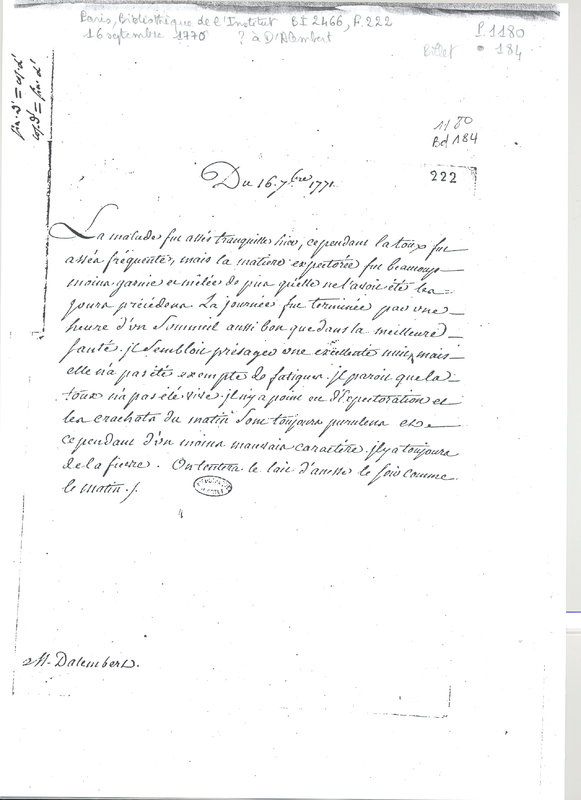 Paris, bibliothèque de l'Institut BI 2466, F. 222
16 septembre 1770 ? à D'Alembert
P. 1180
Billet • 184
1180
Bd 184
222
Du 16. 7.bre 1771.
La malade fut assés tranquille hier, cependant la toux fut
assés fréquente, mais la matiere expectorée fut beaucoup
moins garnie et mêlée de pus qu'elle ne l'avoit été les
jours précédens. La journée fut terminée par une
heure d'un Sommeil aussi bon que dans la meilleure
Santé. il Sembloit présager une excellente nuit, mais
elle n'a pas été exempte de fatigues. il paroit que la
toux n'a pas été vive. il n'y a point eu d'Expectoration et
les crachats du matin Sont toujours purulens et
cependant d'un moins mauvais caractère. il y a toujours
de la fievre. On tentera le lait d'anesse le soir comme
le matin ./.
M. Dalembert.